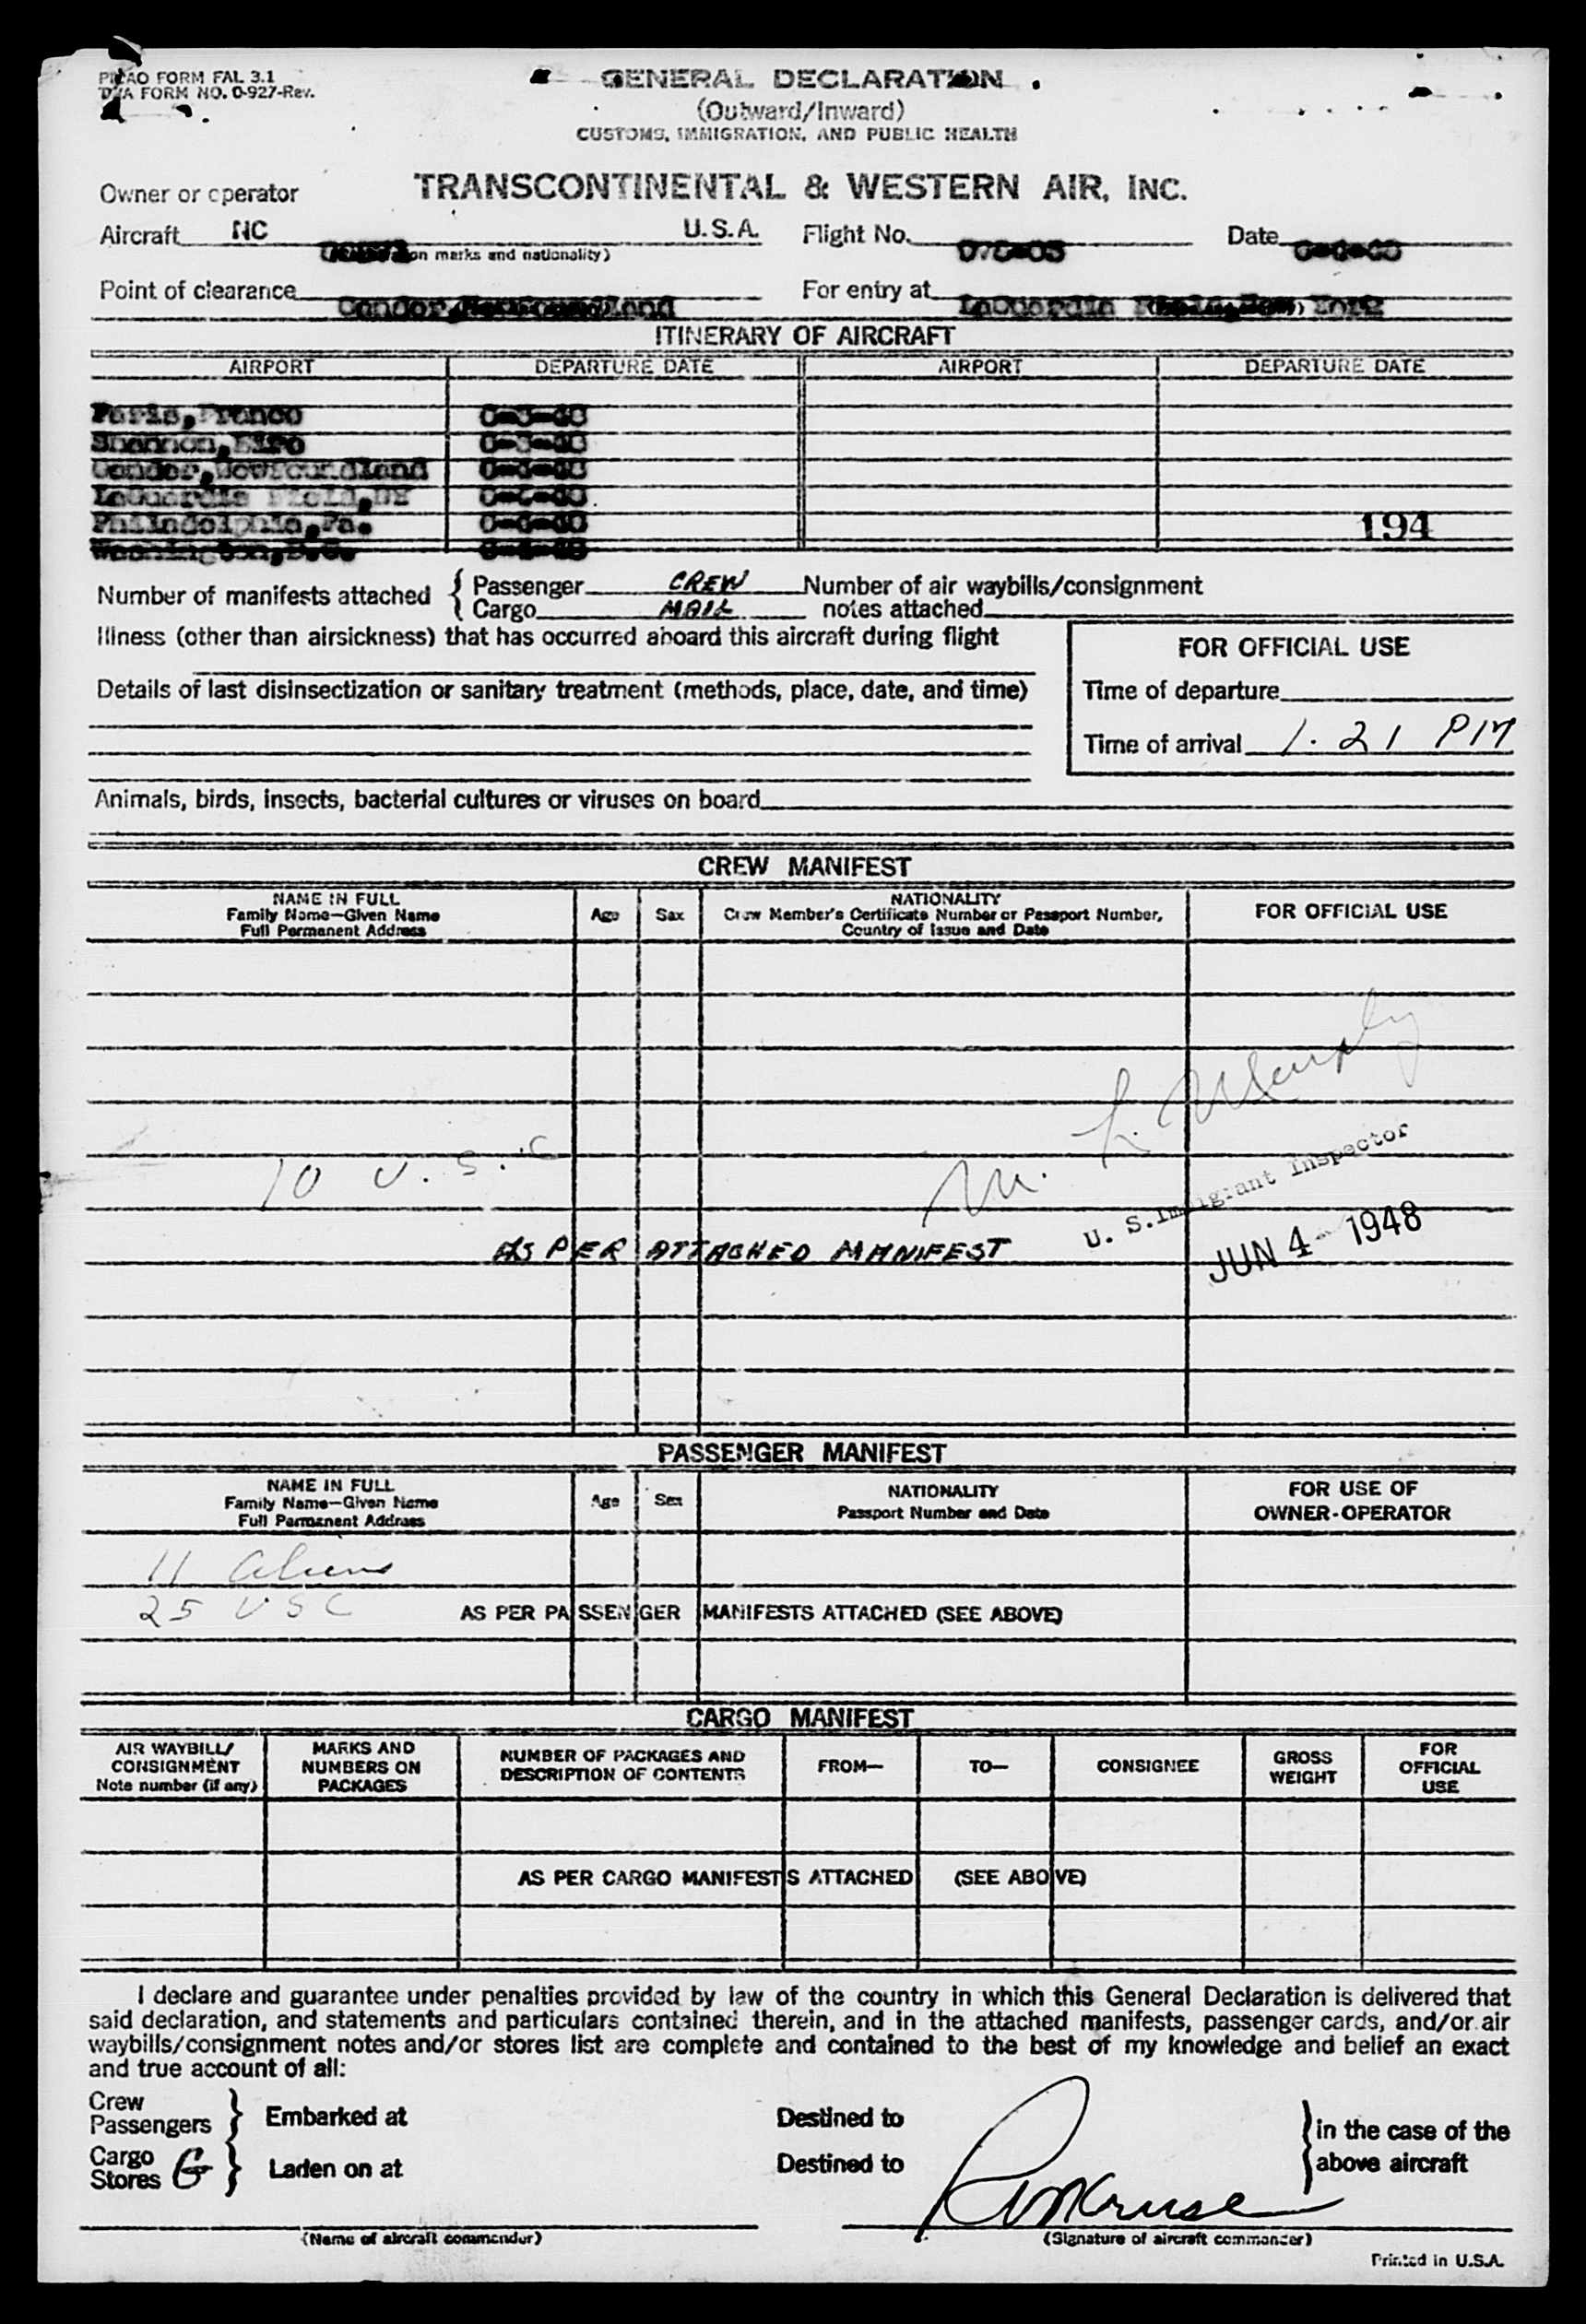 PICAO FORM FAL 3.1
TWA FORM NO. O-927-Rev.
GENERAL DECLARATION
(Outward/Inward)
CUSTOMS, IMMIGRATION, AND PUBLIC HEALTH
Owner or operator TRANSCONTINENTAL & WESTERN AIR, INC.
Aircraft NC U.S.A. Flight No. Date
on marks and nationality)
Point of clearance Gander, Newfoundland For entry at LaGuardia York
ITINERARY OF AIRCRAFT
AIRPORT DEPARTURE DATE AIRPORT DEPARTURE DATE
Paris, France
Shannon, Eire
Gander, Newfoundland
LaGuardia Field, NY
Philadelphia, Pa. 194
Washington, D.C.
Number of manifests attached { Passenger CREW Number of air waybills/consignment
Cargo MAIL notes attached
Illness (other than airsickness) that has occurred aboard this aircraft during flight
FOR OFFICIAL USE
Details of last disinsectization or sanitary treatment (methods, place, date, and time)
Time of departure
Time of arrival 1.21 PM
Animals, birds, insects, bacterial cultures or viruses on board
CREW MANIFEST
NAME IN FULL
Family Name—Given Name
Full Permanent Address
Age Sex
NATIONALITY
Crew Member's Certificate Number or Passport Number,
Country of Issue and Date
FOR OFFICIAL USE
M. L. Murphy
10 U.S.C
U. S. Immigrant Inspector
AS PER ATTACHED MANIFEST
JUN 4 - 1948
PASSENGER MANIFEST
NAME IN FULL
Family Name—Given Name
Full Permanent Address
Age Sex
NATIONALITY
Passport Number and Date
FOR USE OF
OWNER-OPERATOR
11 aliens
25 USC
AS PER PASSENGER MANIFESTS ATTACHED (SEE ABOVE)
CARGO MANIFEST
AIR WAYBILL/
CONSIGNMENT
Note number (if any)
MARKS AND
NUMBERS ON
PACKAGES
NUMBER OF PACKAGES AND
DESCRIPTION OF CONTENTS
FROM— TO— CONSIGNEE
GROSS
WEIGHT
FOR
OFFICIAL
USE
AS PER CARGO MANIFESTS ATTACHED (SEE ABOVE)
I declare and guarantee under penalties provided by law of the country in which this General Declaration is delivered that
said declaration, and statements and particulars contained therein, and in the attached manifests, passenger cards, and/or air
waybills/consignment notes and/or stores list are complete and contained to the best of my knowledge and belief an exact
and true account of all:
Crew
Passengers } Embarked at Destined to
Cargo
Stores G } Laden on at Destined to
} in the case of the
above aircraft
(Name of aircraft commander) (Signature of aircraft commander)
Printed in U.S.A.